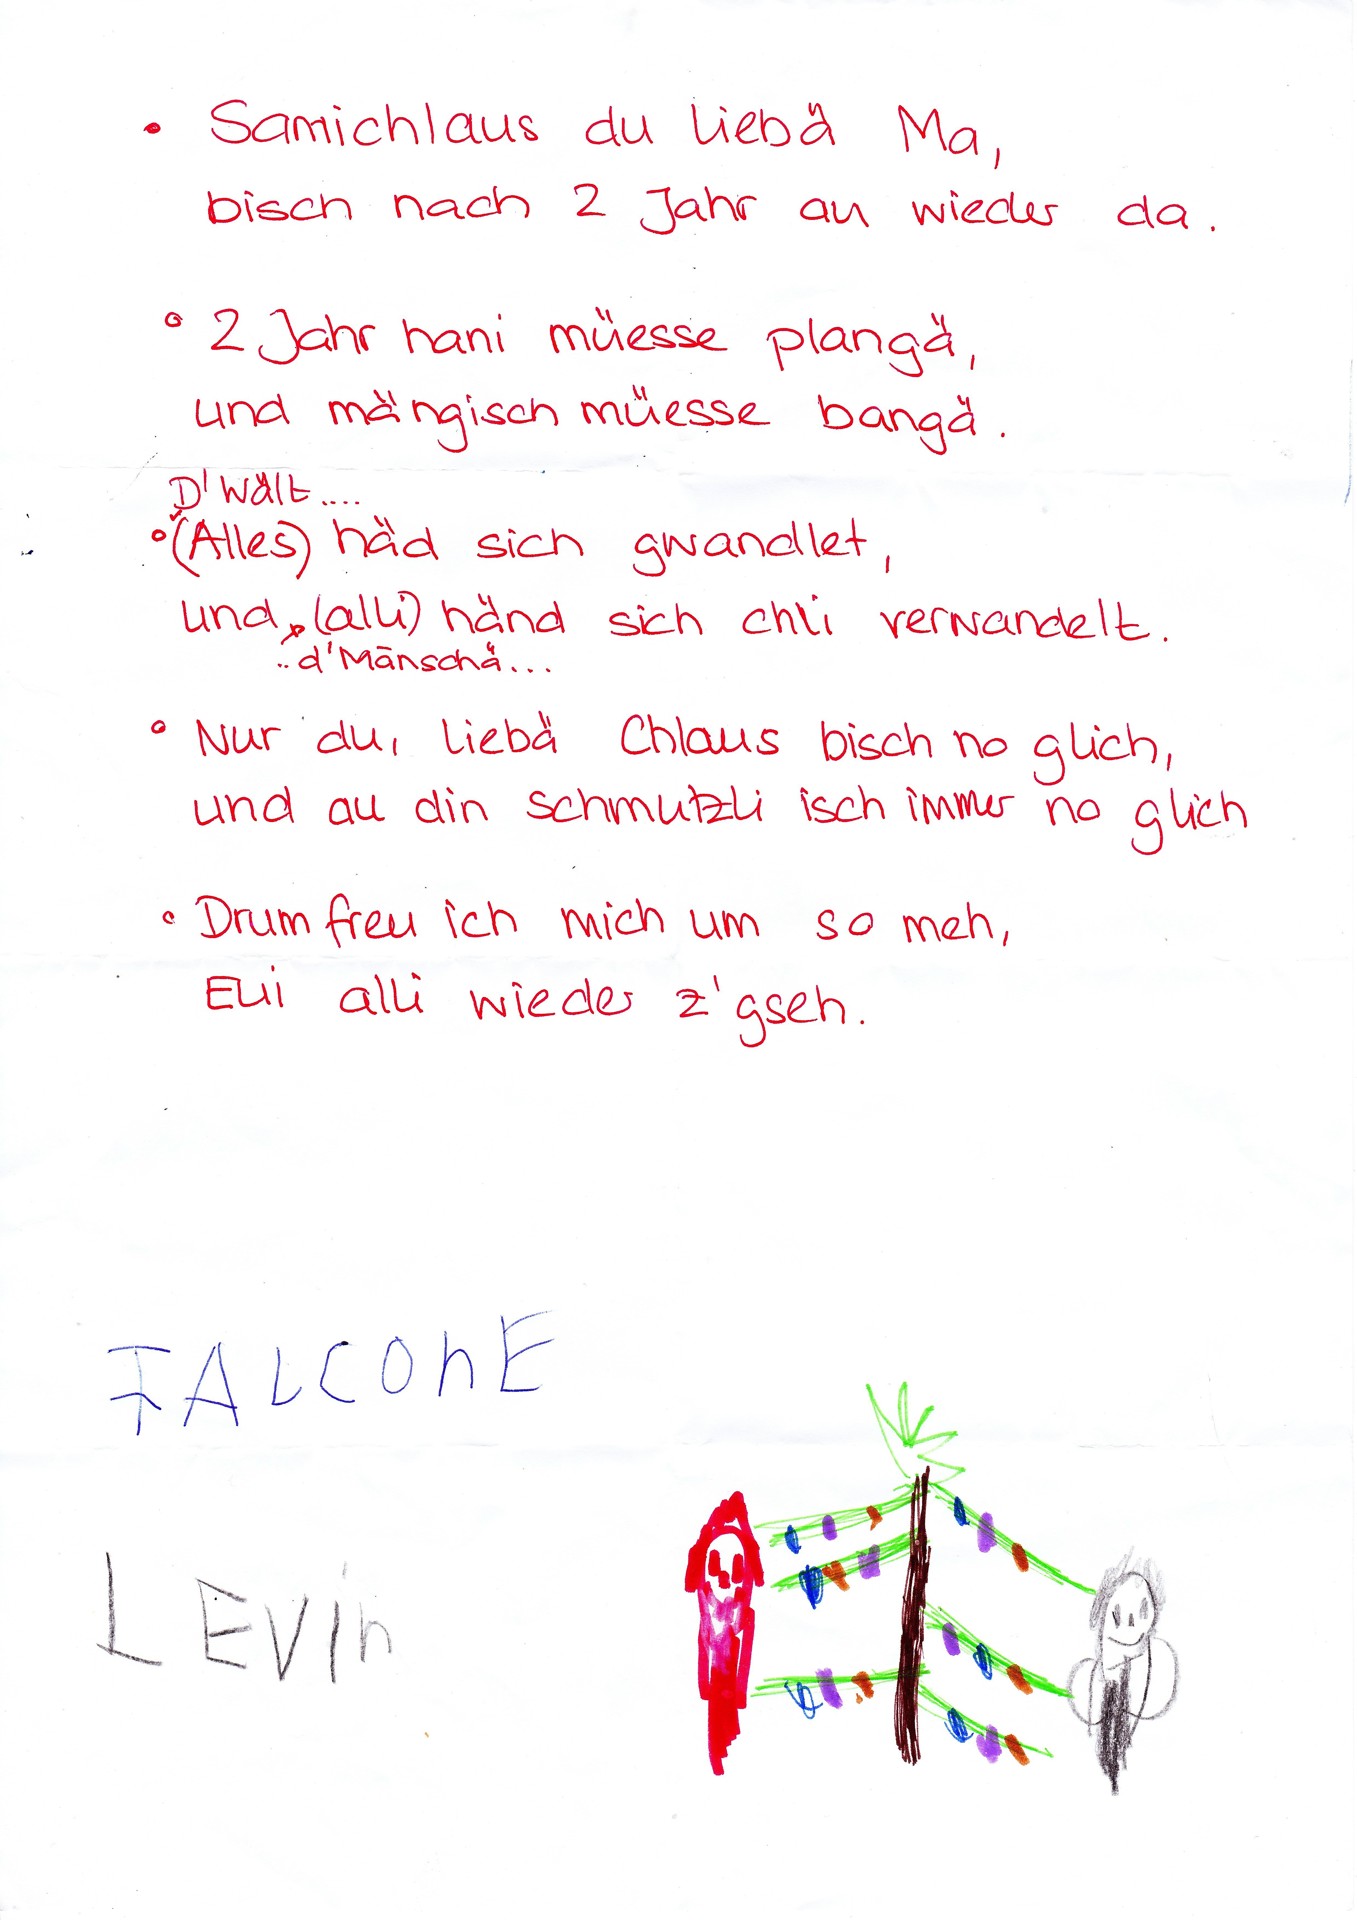 • Samichlaus du liebä Ma,
bisch nach 2 Jahr au wieder da.
• 2 Jahr hani müesse plangä,
und mängisch müesse bangä.
D'Wält....
• (Alles) häd sich gwandlet,
und (alli) händ sich chli verwandelt.
.. d'Mänschä...
• Nur du, liebä Chlaus bisch no glich,
und au din Schmutzli isch immer no glich
• Drum freu ich mich um so meh,
Eui alli wieder z'gseh.
FALCOnE
LEVin